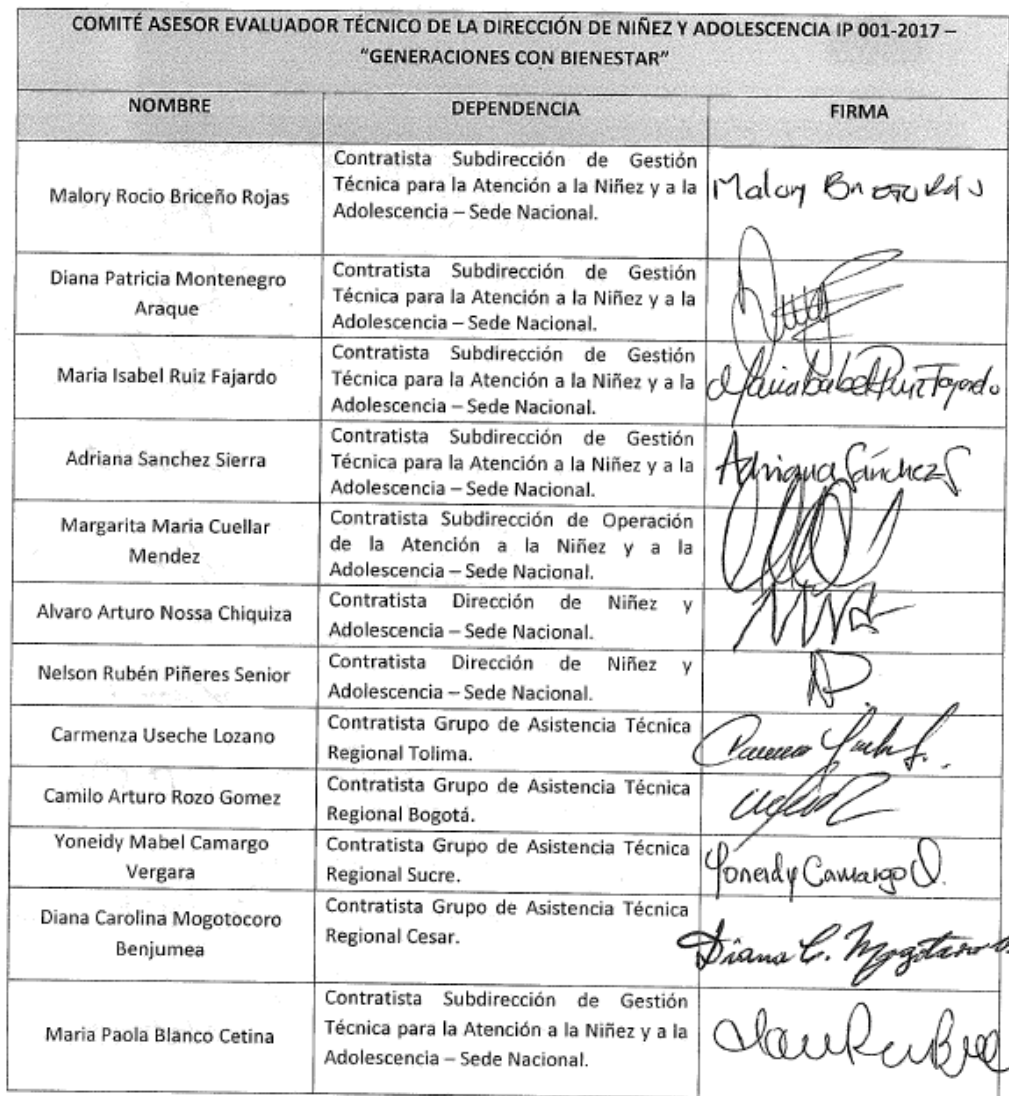 COMITÉ ASESOR EVALUADOR TÉCNICO DE LA DIRECCIÓN DE NIÑEZ Y ADOLESCENCIA IP 001-2017 –
“GENERACIONES CON BIENESTAR”
NOMBRE DEPENDENCIA FIRMA
Malory Rocio Briceño Rojas
Contratista Subdirección de Gestión
Técnica para la Atención a la Niñez y a la
Adolescencia – Sede Nacional.
Malory
Diana Patricia Montenegro
Araque
Contratista Subdirección de Gestión
Técnica para la Atención a la Niñez y a la
Adolescencia – Sede Nacional.
Maria Isabel Ruiz Fajardo
Contratista Subdirección de Gestión
Técnica para la Atención a la Niñez y a la
Adolescencia – Sede Nacional.
Maria Isabel Ruiz Fajardo
Adriana Sanchez Sierra
Contratista Subdirección de Gestión
Técnica para la Atención a la Niñez y a la
Adolescencia – Sede Nacional.
Adriana Sánchez S
Margarita Maria Cuellar
Mendez
Contratista Subdirección de Operación
de la Atención a la Niñez y a la
Adolescencia – Sede Nacional.
Alvaro Arturo Nossa Chiquiza
Contratista Dirección de Niñez y
Adolescencia – Sede Nacional.
Nelson Rubén Piñeres Senior
Contratista Dirección de Niñez y
Adolescencia – Sede Nacional.
Carmenza Useche Lozano
Contratista Grupo de Asistencia Técnica
Regional Tolima.
Camilo Arturo Rozo Gomez
Contratista Grupo de Asistencia Técnica
Regional Bogotá.
Yoneidy Mabel Camargo
Vergara
Contratista Grupo de Asistencia Técnica
Regional Sucre.
Yoneidy Camargo V.
Diana Carolina Mogotocoro
Benjumea
Contratista Grupo de Asistencia Técnica
Regional Cesar.
Diana C. Mogotocoro B.
Maria Paola Blanco Cetina
Contratista Subdirección de Gestión
Técnica para la Atención a la Niñez y a la
Adolescencia – Sede Nacional.